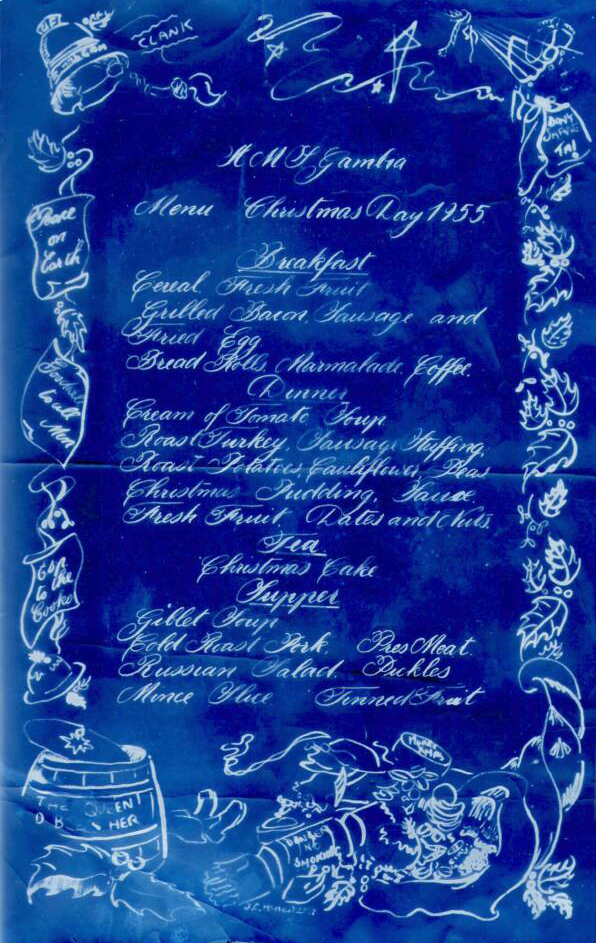 CLANK
DON'T
SHAKE
ThI
H M S Gambia
Menu Christmas Day 1955
Peace
on
Earth
Breakfast
Cereal. Fresh Fruit
Grilled Bacon, Sausage and
Fried Egg
Bread Rolls, Marmalade, Coffee.
Dinner
to all
Men
Cream of Tomato Soup
Roast Turkey, Sausage Stuffing,
Roast Potatoes, Cauliflower, Peas
Christmas Pudding, Sauce,
Fresh Fruit, Dates and Nuts.
Tea
Christmas Cake
Supper
to the
Cooks
Giblet Soup
Cold Roast Pork. Pres Meat.
Russian Salad. Pickles
Mince Slice Tinned Fruit
THE QUEEN
HER
DANGER
NO
SMOKING